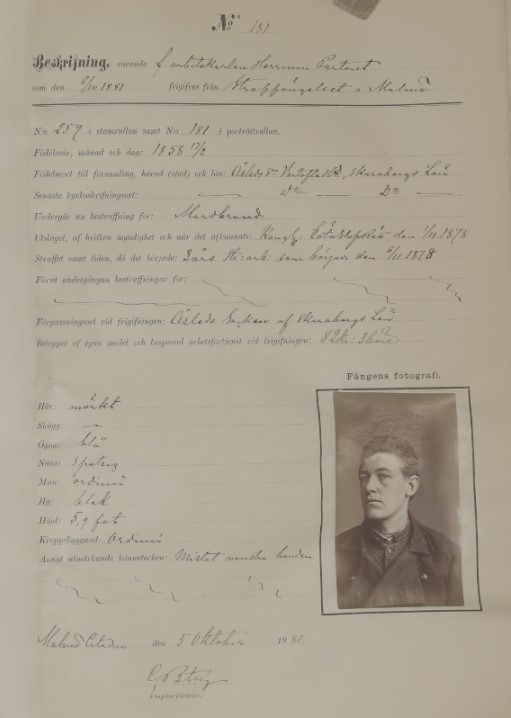 № 181
Beskrifning, rörande f. arbetskarlen Herrman
som den 6/10 1881 frigifves från Straffängelset i Malmö
N:o 259 i stamrullan samt N:o 181 i porträttrullan.
Födelseår, månad och dag: 1858 17/2
Födelseort till församling, härad (stad) och län: Åsleds Sn Vartofta Hd, Skaraborgs Län
Senaste kyrkoskrifningsort: — Do — Do —
Undergår nu bestraffning för: Mordbrand
Utslaget, af hvilken myndighet och när det afkunnats: Kongl. Göta Hofrätt den 1878
Straffet samt tiden, då det började: 3 års st: arb: som börjades den /11 1878
Förut undergångna bestraffningar för:
Förpassningsort vid frigifningen: Åsleds Socken af Skaraborgs Län
Beloppet af egna medel och besparad arbetsförtjenst vid frigifningen: 82 Kr.
Fångens fotografi.
Hår: mörkt
Skägg: —
Ögon: blå
Näsa: spetsig
Mun: ordinär
Hy: blek
Höjd: 5,9 fot
Kroppsbyggnad: Ordinär
Annat utmärkande kännetecken: Mistat venstra handen
Malmö Citadell den 5 Oktober 1881.
Fängelse-Direktör.